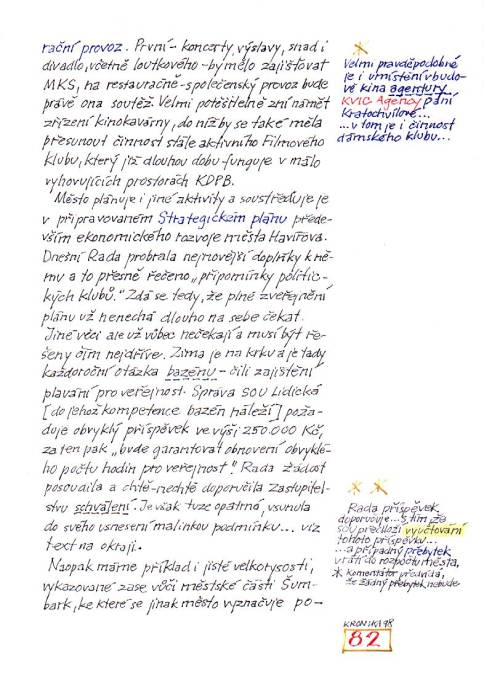 rační provoz. První - koncerty, výstavy, snad i
divadlo, včetně loutkového - by mělo zajišťovat
MKS, na restauračně-společenský provoz bude
právě ona soutěž. Velmi potěšitelně zní námět
zřízení kinokavárny, do níž by se také měla
přesunout činnost stále aktivního Filmového
klubu, který již dlouhou dobu funguje v málo
vyhovujících prostorách KDPB.
Město plánuje i jiné aktivity a soustřeďuje je
v připravovaném Strategickém plánu přede-
vším ekonomického rozvoje města Havířova.
Dnešní Rada probrala nejnovější doplňky k ně-
mu a to přesně řečeno „připomínky politic-
kých klubů." Zdá se tedy, že plné zveřejnění
plánu už nenechá dlouho na sebe čekat.
Jiné věci ale už vůbec nečekají a musí být ře-
šeny čím nejdříve. Zima je na krku a je tady
každoroční otázka bazénu - čili zajištění
plavání pro veřejnost. Správa SOU Lidická
[do jehož kompetence bazén náleží] poža-
duje obvyklý příspěvek ve výši 250.000 Kč,
za ten pak „bude garantovat obnovení obvyklé-
ho počtu hodin pro veřejnost". Rada žádost
posoudila a chtě-nechtě doporučila Zastupitel-
stvu schválení. Je však tuze opatrná, vsunula
do svého usnesení malinkou podmínku... viz
text na okraji.
Naopak máme příklad i jisté velkotysosti,
vykazované zase vůči městské části Šum-
bark, ke které se jinak město vyznačuje po-
Velmi pravděpodobné
je i umístění v budo-
vě kina agentury
KVIC Agency paní
Kratochvílové...
...v tom je i činnost
dámského klubu...
Rada příspěvek
doporučuje... s tím, že
SOU předloží vyúčtování
tohoto příspěvku...
...a případný přebytek
vrátí do rozpočtu města.
* Komentátor předvídá,
že žádný přebytek nebude
KRONIKA 98
82